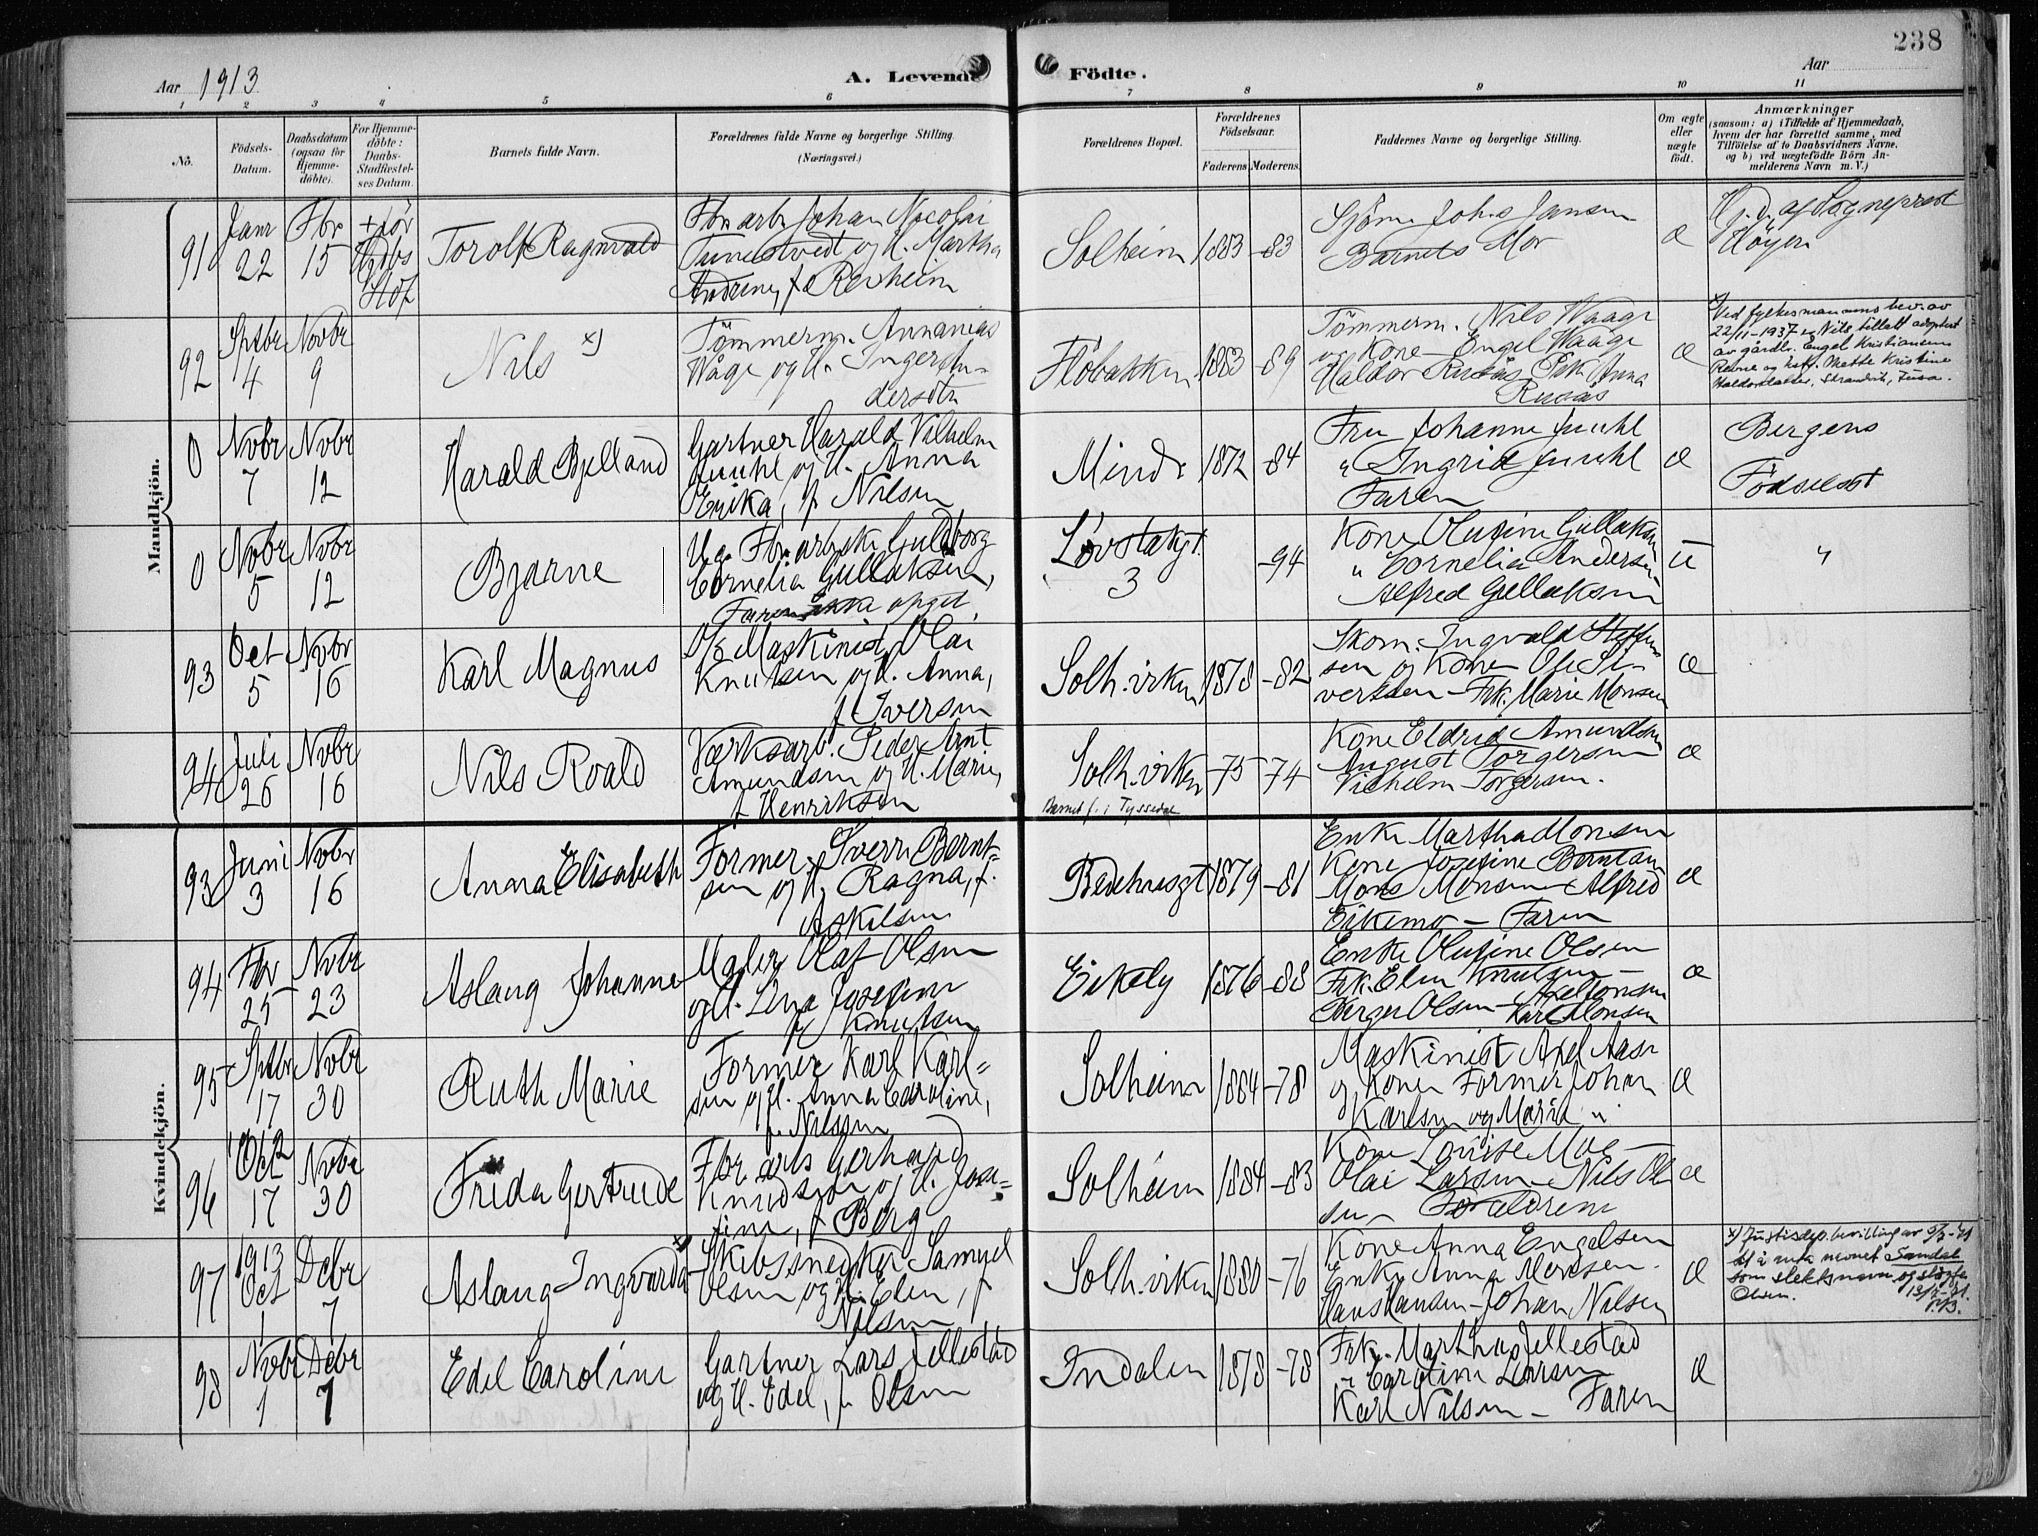 238
Aar 1913
A. Levende Födte.
Aar
1 2 3 4 5 6 7 8 9 10 11
Nô.
Födsels-Datum.
Daabsdatum (ogsaa for Hjemme-döbte).
For Hjemme-döbte: Daabs-Stadfæstel-ses Datum.
Barnets fulde Navn.
Forældrenes fulde Navne og borgerlige Stilling. (Næringsvei.)
Forældrenes Bopæl.
Forældrenes Födselsaar.
Faderens. Moderens.
Faddernes Navne og borgerlige Stilling.
Om ægte eller uægte födt.
Anmærkninger
(saasom: a) i Tilfælde af Hjemmedaab, hvem der har forrettet samme, med Tilföielse af to Daabsvidners Navne, og b) ved uægtefödte Börn Anmelderens Navn m. V.)
Mandkjön.
91 Janr 22 Fbr 15 + før
Torolf Ragnvald
Fbr.arb. Johan Nicolai
og H. Martha
Andrine, f. Revheim
Solheim 1883 -83
Sjöm. Johs Jansen
Barnets Mor
æ
Hj.d. af Sogneprest
Höyer
92 Sptbr 4 Novbr 9
Nils x)
Tömmerm. Annanias
Wåge og H. Inger
dersdtr
Flöbakken 1883 -89
Tömmerm. Nils Waage
og Kone - Engel Waage
Haldor Rusås Frk. Anna
Rusås
æ
Ved fylkesmannens bev. av
22/11-1937 er Nils tillatt adoptert
av gårdbr. Engel Kristiansen
Revne og hst. Mette Kristine
Haldorsdatter, Strandvik, Fusa.
0 Nvbr 7 Nvbr 12
Harald Bjelland
Gartner Harald Vilhelm
Juuhl og H. Anna
Erika, f. Nilsen
Minde 1872 -84
Fru Johanne Juuhl
" Ingrid Juuhl
Faren
æ
Bergens
Födselsst
0 Nvbr 5 Nvbr 12
Bjarne
Ug. Fbr.arbske Guldborg
Cornelia Gullaksen,
Faren ikke opget
Løvstakgt.
3
-94
Kone Olufine Gullaksen
" Cornelia Andersen
Alfred Gullaksen
u
"
93 Oct 5 Nvbr 16
Karl Magnus
Maskinist Olai
Knutsen og H. Anna,
f Iversen
Solh.viken 1878 -82
Skom. Ingvald Steffen
sen og Kone - Ole Si-
vertsen - Frk. Marie Monsen
æ
94 Juli 26 Nvbr 16
Nils Roald
Værksarb. Peder Arnt
Amundsen og H. Marie,
f Henriksen
Solh.viken -75 -74
Barnet f. i Tyssedal
Kone Eldrid Amundsen
August Torgersen
Vilhelm Torgersen.
æ
Kvindekjön.
93 Juni 3 Nvbr 16
Anna Elisabeth
Former Sverre Bernt-
sen og H. Ragna, f.
Askilsen
Bedehusgt 1879 -81
Enke Martha Monsen
Kone Josefine Berntsen
Mons Monsen Alfred
Eikemo - Faren
æ
94 Fbr 25 Nvbr 23
Aslaug Johanne
Maler Olaf Olsen
og H. Lina Josefine
f Knutsen
Eikely 1876 -88
Enke Olufine Olsen
Frk. Elen Knutsen -
Birger Olsen - Axel Jonsen
Karl Monsen
æ
95 Sptbr 17 Nvbr 30
Ruth Marie
Former Karl Karl-
sen og H. Anna Caroline,
f. Nilssen
Solheim 1884 -78
Maskinist Axel Aase
og Kone Former Johan
Karlsen og Maria "
æ
96 Oct 17 Nvbr 30
Frida Gertrude
Fbr arb Gerhard
Knudsen og H. Jose-
fine, f Berg
Solheim 1884 -83
Kone Lovise Moe -
Olai Larsen - Nils Ol
sen - Forældrene
æ
97 1913 Oct 1 Debr 7
Aslaug Ingvarda x)
Skibssnedker Samuel
Olsen og H. Elen, f
Nilsen
Solh.viken 1880 -76
Kone Anna Engelsen
Enke Anna Monsen.
Hans Hansen - Johan Nilsen
æ
x) Justisdep. bevilling av
til å anta navnet Sandal
som slektsnavn og sløyfe
Olsen.
98 Nvbr 1 Debr 7
Edel Caroline
Gartner Lars Jellestad
og H. Edel, f Olsen
Indalen 1878 -78
Frk. Martha Jellestad
" Caroline Larsen
Karl Nilsen - Faren
æ